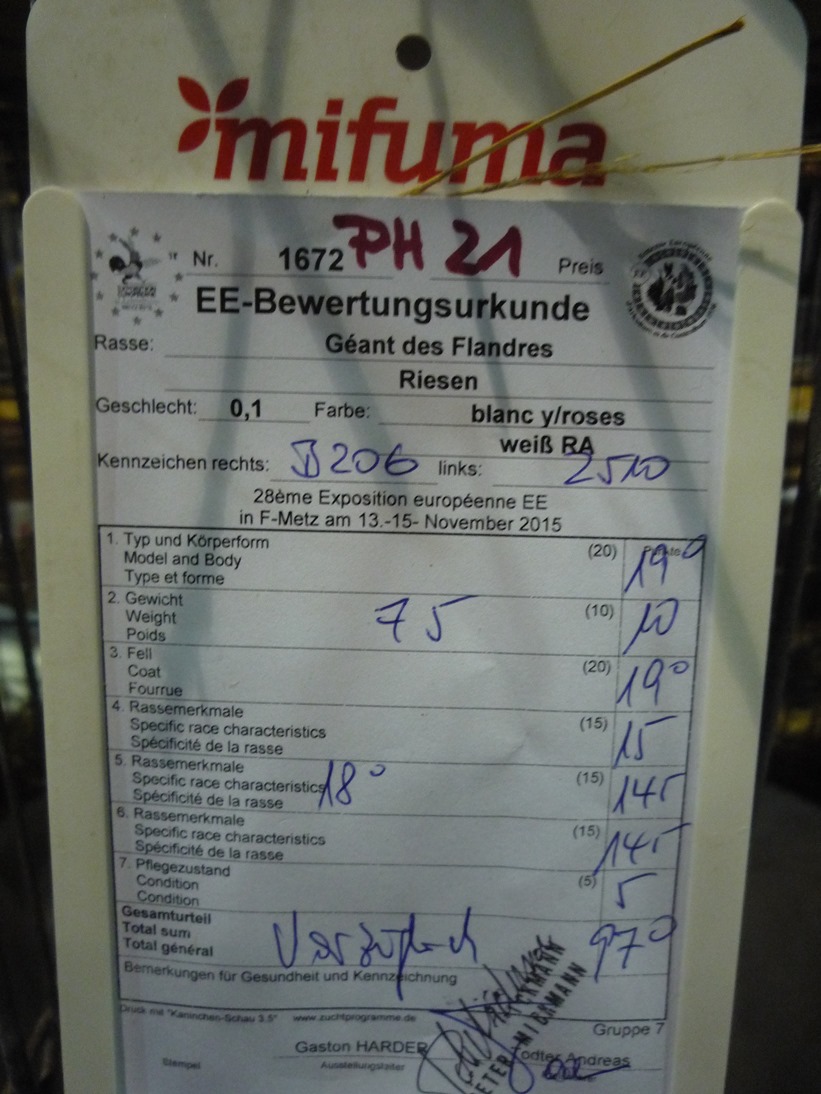 mifuma
Nr. 1672 PH 21 Preis
EE-Bewertungsurkunde
Rasse: Géant des Flandres
Riesen
Geschlecht: 0,1 Farbe: blanc y/roses
weiß RA
Kennzeichen rechts: D206 links: 2510
28ème Exposition européenne EE
in F-Metz am 13.-15- November 2015
1. Typ und Körperform (20) Punkte 19⁰
Model and Body
Type et forme
2. Gewicht 75 (10) 10
Weight
Poids
3. Fell (20) 19⁰
Coat
Fourrue
4. Rassemerkmale (15) 15
Specific race characteristics
Spécificité de la rasse
5. Rassemerkmale (15) 145
Specific race characteristics 18⁰
Spécificité de la rasse
6. Rassemerkmale (15) 145
Specific race characteristics
Spécificité de la rasse
7. Pflegezustand (5) 5
Condition
Condition
Gesamturteil
Total sum Vorzüglich 97⁰
Total général
Bemerkungen für Gesundheit und Kennzeichnung
Druck mit "Kaninchen-Schau 3.5" www.zuchtprogramme.de
Gruppe 7
Gaston HARDER Todter Andreas
Stempel Ausstellungsleiter